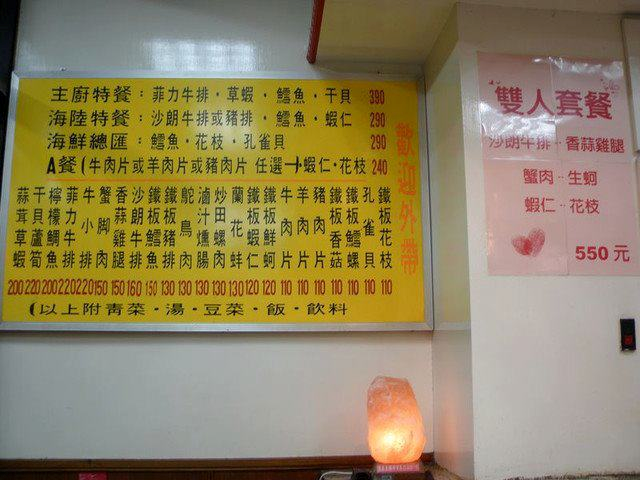 主廚特餐：菲力牛排・草蝦・鱈魚・干貝 390
海陸特餐：沙朗牛排或豬排・鱈魚・蝦仁 290
海鮮總匯：鱈魚・花枝・孔雀貝 290
A餐(牛肉片或羊肉片或豬肉片 任選→蝦仁・花枝 240
蒜茸草蝦 200
干貝蘆筍 220
檸檬鯛魚 200
菲力牛排 220
牛小排 220
蟹脚肉 150
香蒜雞腿 150
沙朗牛排 160
鐵板鱈魚 150
鐵板豬排 130
鴕鳥肉 130
滷汁燻腸 130
炒田螺肉 130
蘭花蚌 130
鐵板蝦仁 120
鐵板鮮蚵 120
牛肉片 110
羊肉片 110
豬肉片 110
鐵板香菇 110
鐵板鱈螺 110
孔雀貝 110
鐵板花枝 110
(以上附青菜・湯・豆菜・飯・飲料
歡迎外帶
雙人套餐
沙朗牛排--香蒜雞腿
蟹肉--生蚵
蝦仁--花枝
550元